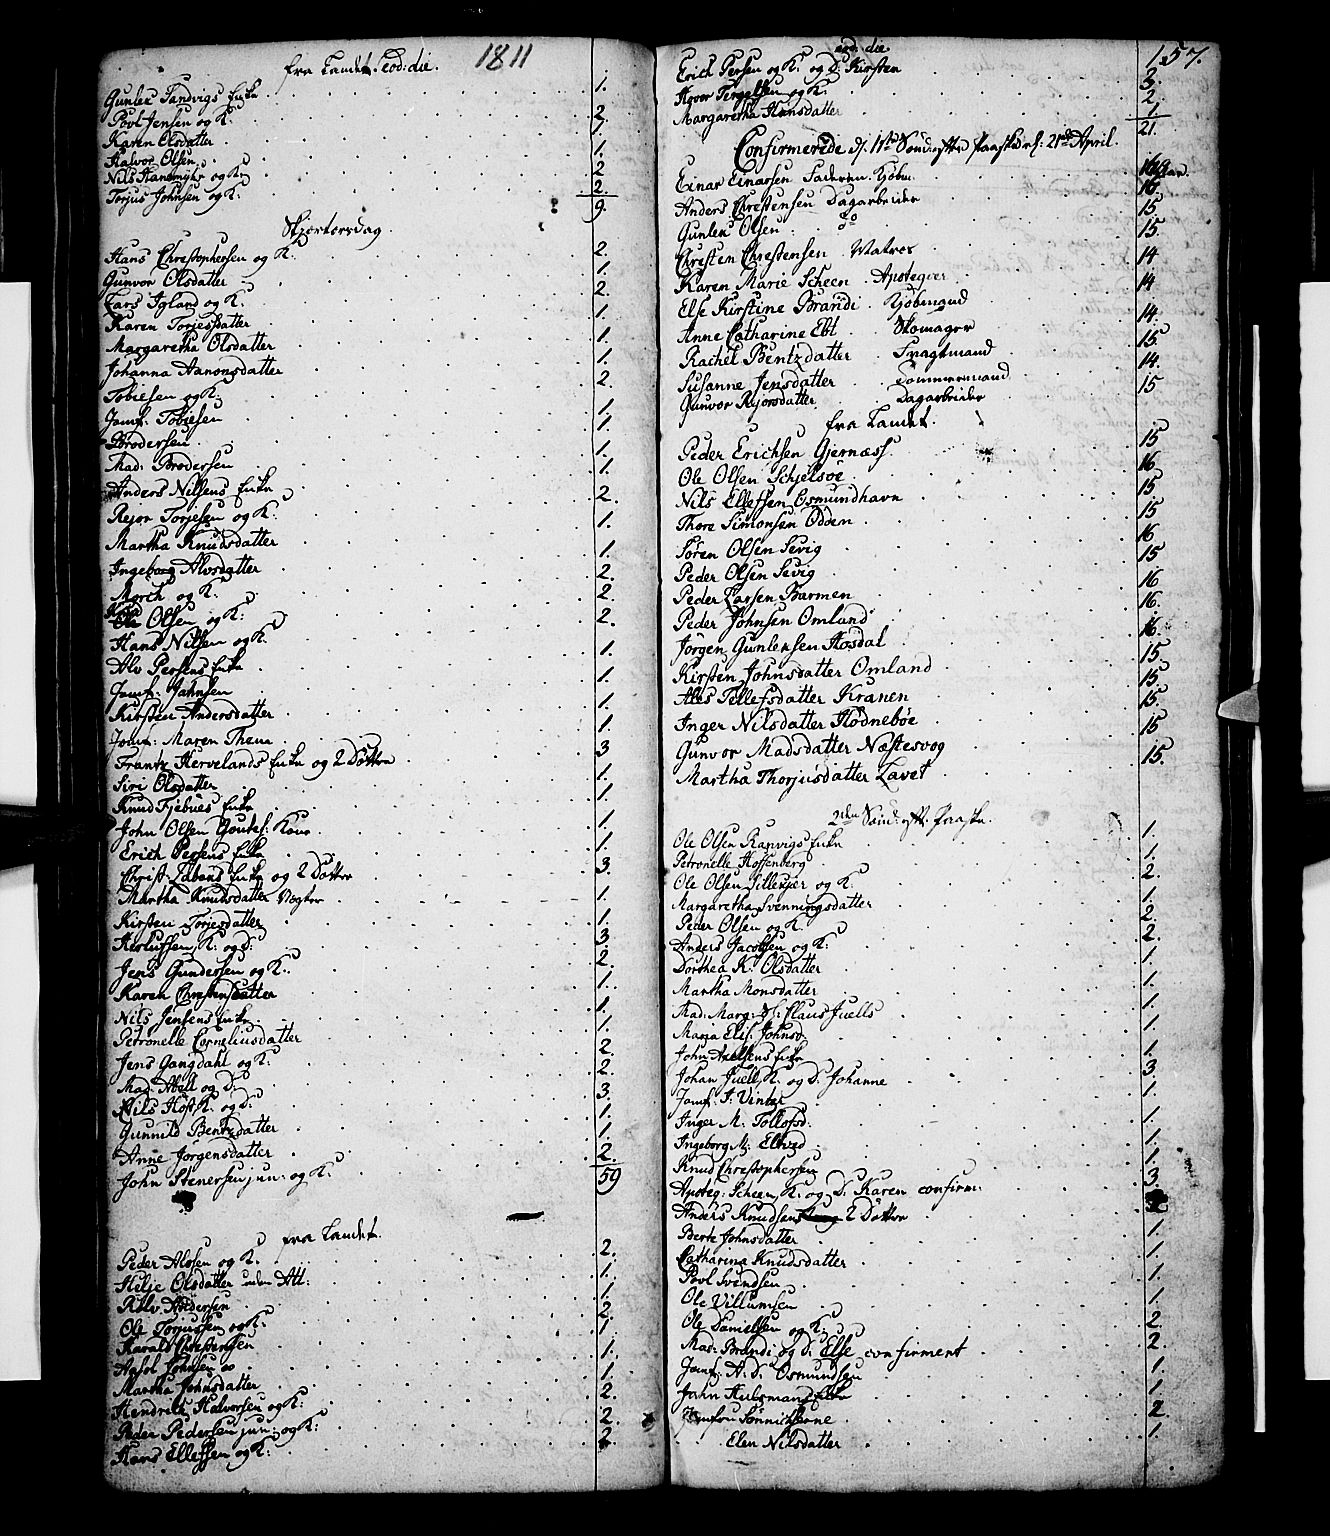 1811
fra Landet. eod: die.
Gunlex Sandvigs Enke 1.
Povl Jensen og K: 2.
Karen Olsdatter 1.
Halvor Olsen 1.
Nils Hansmyhr og K: 2
Torjus Johnsen og K: 2.
9.
Skjertorsdag
Hans Christophersen og K. 2.
Gunvor Olsdatter 1.
Lars Igland og K. 2.
Karen Torjesdatter 1.
Margaretha Olsdatter 1.
Johanna Aanonsdatter 1.
Tobiesen og K. 2.
Jomf: Tobiesen 1.
Brodersen 1.
Mad: Brodersen 1.
Anders Nilsens Enke 1.
Rejer Torjesen og K. 2.
Martha Knudsdatter 1.
Ingeborg Alvsdatter 1.
Morch og K. 2.
Ole Olsen og K: 2.
Hans Nilsen og K 2.
Alv Persens Enke 1.
Jomf: Jahnsen 1.
Kirsten Andersdatter 1.
Jomf: Maren Them 1.
Frantz Hervelands Enke og 2 Døttre 3
Siri Olsdatter 1.
Knud Fjebues Enke 1.
John Olsen Kone 1.
Erich Persens Enke 1.
Christ: Enke og 2 Døttre 3.
Martha Knudsdatter 1.
Kirsten Torjesdatter 1.
K: og D: 3.
Jens Gundersen og K. 2.
Karen Christensdatter 1.
Nils Jensens Enke 1.
Petronelle Corneliusdatter 1.
Jens Gangdahl og K: 2.
Mad: Abell og D: 2.
Nils Høst K: og D: 3.
Gunnild Bentzdatter 1.
Anne Jørgensdatter 1.
John Stenersen jun: og K: 2.
59
fra Landet.
Peder Alvsen og K. 2.
Hilje Olsdatter uden Att: 1.
Andersen 1.
Ole Torjusen og K: 2.
Harald Christensen 1
Johnsen 1.
Martha Johnsdatter 1.
Hendrik Halvorsen og K: 2.
Peder Pedersen jun: og K: 2.
Hans Ellefsen og K: 2
157.
eod. die.
Erich Persen og K: og D. Kirsten 3.
Hover Tergelsen og K 2.
Margaretha Hansdatter 1.
21.
Confirmerede d. 1ste Sond: efter Paaske nl: 21de April.
Einar Einarsen Faderen. Kjøbm:
Anders Christensen Dagarbeider 15.
Gunlex Olsen do 15
Christen Christensen Matros 15.
Karen Marie Scheen Apoteger 14
Else Kirstine Brandi Kjøbmand 14
Anne Catharine Ebt Skomager 14.
Rachel Bentzdatter Fragtmand 15
Susanne Jensdatter Tømmermand 14.
Gunvor Rejersdatter Dagarbeider 15
fra Landet.
Peder Erichsen Gjernæss 15
Ole Olsen Schjelsøe 16
Nils Ellefsen Osmundhavn 15
Thore Simonsen Odden 15
Søren Olsen Sevig 16
Peder Olsen Sevig 15
Peder Larsen Barmen 16
Peder Johnsen Omland 16.
Jørgen Gunlexsen Hosdal 16.
Kirsten Johnsdatter Omland 15.
Ales Tellefsdatter Kranen 15
Inger Nilsdatter Hødnebøe 15.
Gunvor Madsdatter Næstesvog 15
Martha Thorjusdatter Lavet 15.
2den Sønd: eft. Paaske.
Ole Olsen Ranvigs Enke 1.
Petronelle Hossenberg 1.
Ole Olsen Sillekjær og K. 2.
Margaretha Svenningsdatter 1.
Peder Olsen og K: 2.
Anders Jacobsen og K: 2.
Dorthea K: Olsdatter 1.
Martha Monsdatter 1.
Mad: Marg: Sl: Claus Juells 1.
Maria Elis: Johnsd. 1.
John Axelsens Enke 1.
Johan Juell K. og D. Johanne 3.
Jomf: S: Vinter 1.
Inger M: Tollofsd: 1.
Ingeborg M: Elhved 1.
Knud Christophersen 1.
Apoteg: Scheen, K: og D: Karen confirm: 3.
Anders Knudsens 2 Døttre
Berte Johnsdatter 1.
Catharina Knudsdatter 1.
Povl Svendsen 1.
Ole Villumsen 1.
Ole Danielsen og K. 2.
Mad: Brandi og D. Else confirment 2.
Jomf: A: D: Osmundsen 1.
Jahn Hulsmans Enke 1
Jomfru Sønnichsene 2.
Elen Nilsdatter 1.